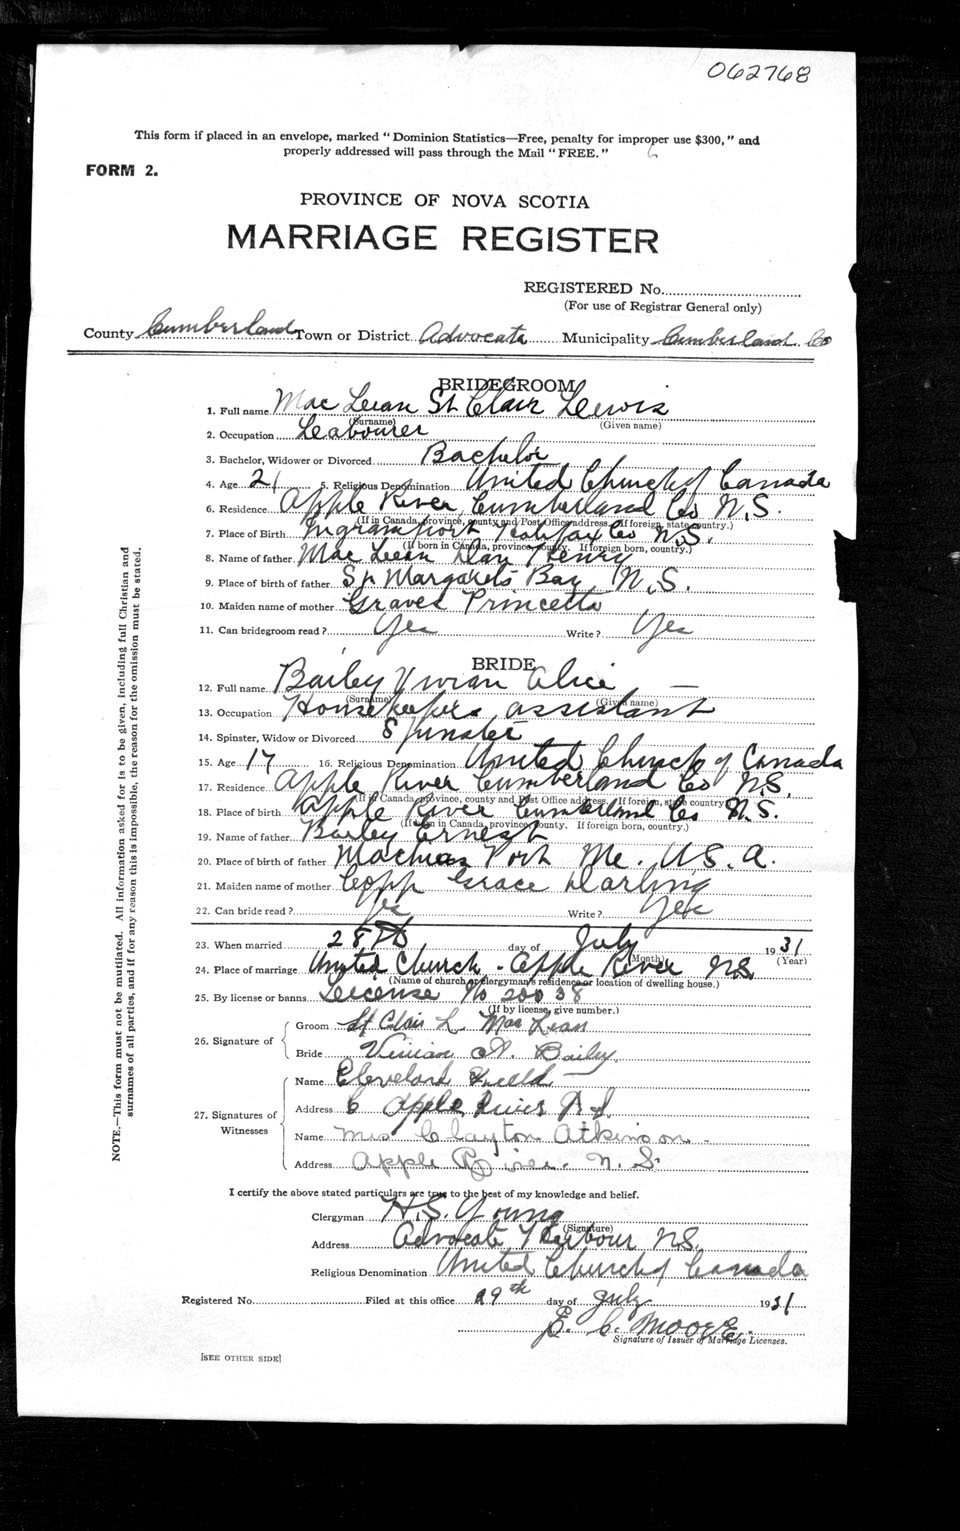 062768
This form if placed in an envelope, marked "Dominion Statistics—Free, penalty for improper use $300," and
properly addressed will pass through the Mail "FREE."
FORM 2.
PROVINCE OF NOVA SCOTIA
MARRIAGE REGISTER
REGISTERED No.
(For use of Registrar General only)
County Cumberland Town or District Advocate Municipality Cumberland Co
BRIDEGROOM
1. Full name Mac Lean St Clair Lewis
(Surname) (Given name)
2. Occupation Leabourer
3. Bachelor, Widower or Divorced Bachelor
4. Age 21 5. Religious Denomination United Church of Canada
6. Residence Apple River, Cumberland Co N.S.
(If in Canada, province, county and Post Office address. If foreign, state country.)
7. Place of Birth Ingramport Halifax Co N.S.
(If born in Canada, province, county. If foreign born, country.)
8. Name of father Mac Lean Dan Henry
9. Place of birth of father St Margarets Bay, N.S.
10. Maiden name of mother Graves Princetta
11. Can bridegroom read? Yes Write? Yes
BRIDE
12. Full name Bailey Vivian Alice
(Surname) (Given name)
13. Occupation House keepers assistant
14. Spinster, Widow or Divorced Spinster
15. Age 17 16. Religious Denomination United Church of Canada
17. Residence Apple River Cumberland Co N.S.
(If in Canada, province, county and Post Office address. If foreign, state country.)
18. Place of birth Apple River Cumberland Co N.S.
(If born in Canada, province, county. If foreign born, country.)
19. Name of father Bailey Ernest
20. Place of birth of father Machias Port Me. U.S.A.
21. Maiden name of mother Copp Grace Darling
22. Can bride read? Yes Write? Yes
23. When married 28th day of July 1931
(Month) (Year)
24. Place of marriage United Church - Apple River N.S.
(Name of church or clergyman's residence or location of dwelling house.)
25. By license or banns License No 20038
(If by license, give number.)
26. Signature of
Groom St. Clair L. Mac Lean
Bride Vivian A. Bailey
27. Signatures of Witnesses
Name Cleveland
Address Apple River N.S.
Name Mrs Clayton Atkinson
Address Apple River. N.S.
I certify the above stated particulars are true to the best of my knowledge and belief.
Clergyman H.S. Young
(Signature)
Address Advocate Harbour N.S.
Religious Denomination United Church of Canada
Registered No. Filed at this office 29th day of July 1931
E. C. Moore.
Signature of Issuer of Marriage Licenses.
[SEE OTHER SIDE]
NOTE.—This form must not be mutilated. All information asked for is to be given, including full Christian and
surnames of all parties, and if for any reason this is impossible, the reason for the omission must be stated.